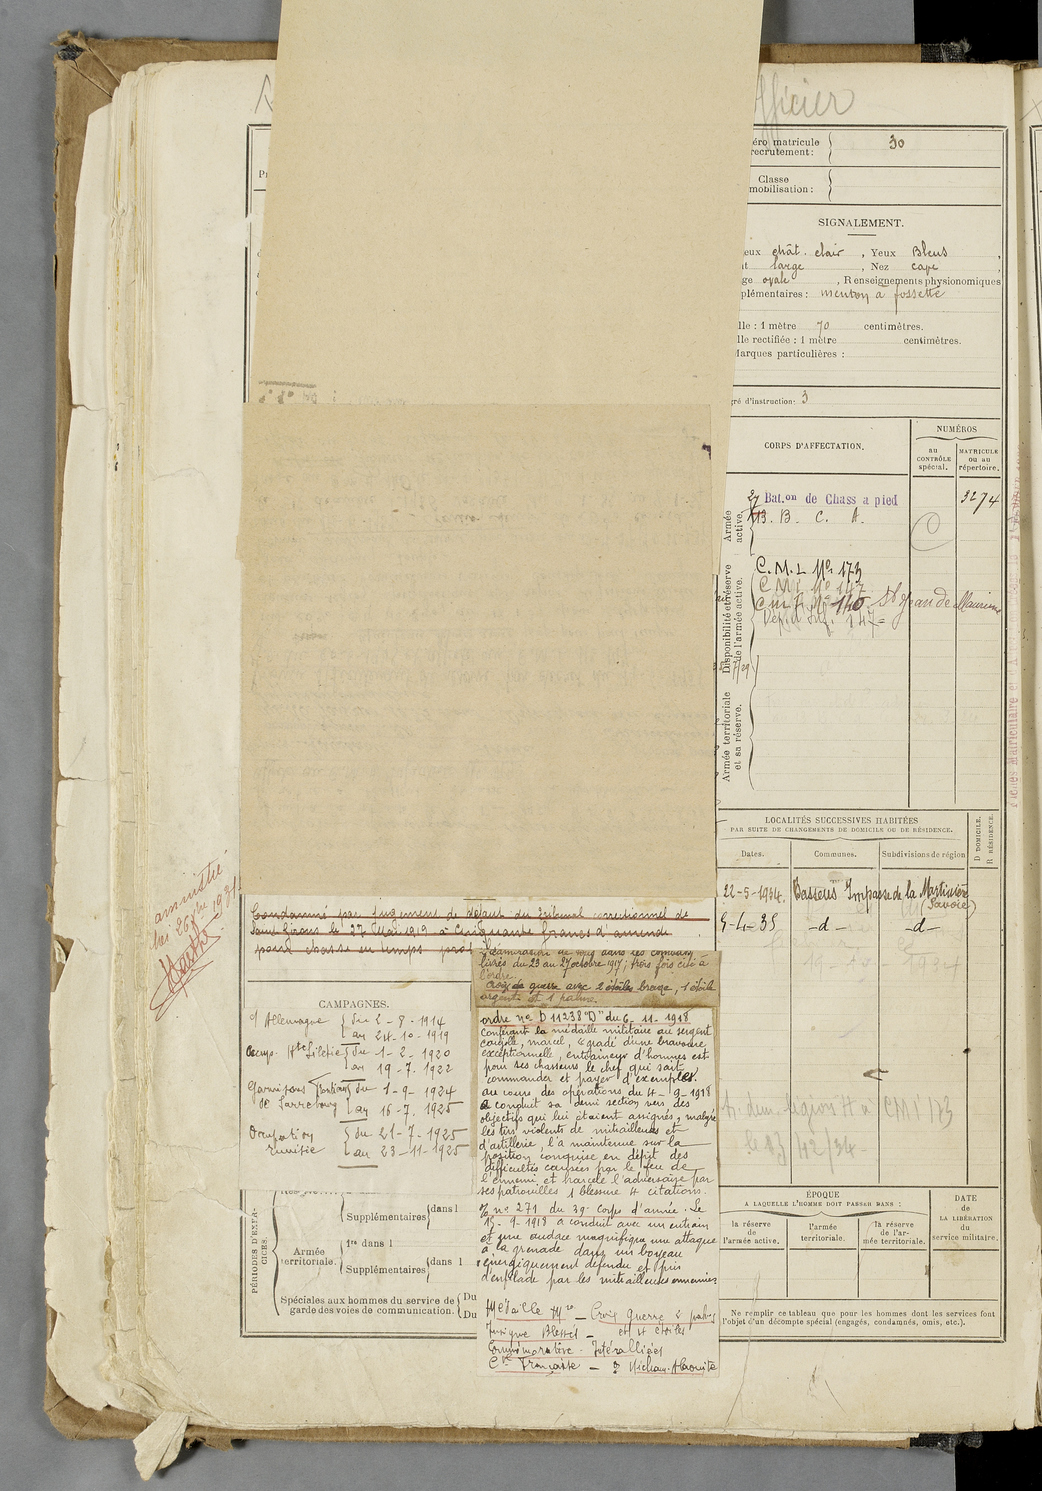 fficier
éro matricule
recrutement : 30
Classe
mobilisation :
SIGNALEMENT.
eux chât. clair , Yeux Bleus ,
t large , Nez cave ,
ge ovale , Renseignements physionomiques
plémentaires : menton à fossette
lle : 1 mètre 70 centimètres.
lle rectifiée : 1 mètre centimètres.
Marques particulières :
gré d'instruction : 3
CORPS D'AFFECTATION.
NUMÉROS
au CONTRÔLE spécial.
MATRICULE ou au répertoire.
Armée active.
27 Bat.on de Chass a pied 3274
13. B. C. A.
Disponibilité et réserve de l'armée active.
C. M. I. No. 173
C M I No 147
C M I No 140 St Jean de Maurienne
Armée territoriale et sa réserve.
LOCALITÉS SUCCESSIVES HABITÉES
PAR SUITE DE CHANGEMENTS DE DOMICILE OU DE RÉSIDENCE.
Dates. Communes. Subdivisions de région
D DOMICILE.
R RÉSIDENCE.
22-5-1934. Bassens Impasse de la Martinière
Savoie)
5-4-35 -d- -d-
amnistié
Condamné par jugement de défaut du Tribunal correctionnel de
Saint Girons le 27 Mai 1919 à Cinquante francs d'amende
pour chasse en temps proh
CAMPAGNES.
c/ Allemagne { du 2-8-1914
au 24-10-1919
Occup. Hte Silésie { du 1-2-1920
au 19-7-1922
Garnisons { du 1-9-1924
de Sarrebourg { au 16-7-1925
Occupation { du 21-7-1925
au 23-11-1925
l'admiration de tous dans les combats
livrés du 23 au 27 octobre 1917; trois fois cité à
l'ordre.
Croix de guerre avec 2 étoiles bronze, 1 étoile
argent et 1 palme.
ordre no D 11238 "D" du 6-11-1918
Conférant la médaille militaire au sergent
marcel, gradé d'une bravoure
exceptionnelle, entraîneur d'hommes est
pour ses chasseurs le chef qui sait
commander et payer d'exemples.
au cours des opérations du 4-9-1918
a conduit sa demi section vers des
objectifs qui lui étaient assignés, malgré
les tirs violents de mitrailleuses et
d'artillerie, l'a maintenue sur la
position conquise en dépit des
difficultés causées par le feu de
l'ennemi et harcelé l'adversaire par
ses patrouilles 1 blessure 4 citations.
no 271 du 39e Corps d'armée. Le
15-9-1918 a conduit avec un entrain
et une audace magnifique une attaque
à la grenade dans un boyau
énergiquement défendu et pris
d'enfilade par les mitrailleuses ennemies
Médaille Mre _ Croix Guerre 2 palmes
Insigne Blessés _ et 4 étoiles
Commémorative - Interalliées
PÉRIODES D'EXERCICES.
Supplémentaires dans l
Armée territoriale.
1re dans l
Supplémentaires dans l
Spéciales aux hommes du service de garde des voies de communication. Du
Du
ÉPOQUE
A LAQUELLE L'HOMME DOIT PASSER DANS :
la réserve de l'armée active.
l'armée territoriale.
la réserve de l'armée territoriale.
DATE
de
LA LIBÉRATION
du
service militaire.
Ne remplir ce tableau que pour les hommes dont les services font
l'objet d'un décompte spécial (engagés, condamnés, omis, etc.).